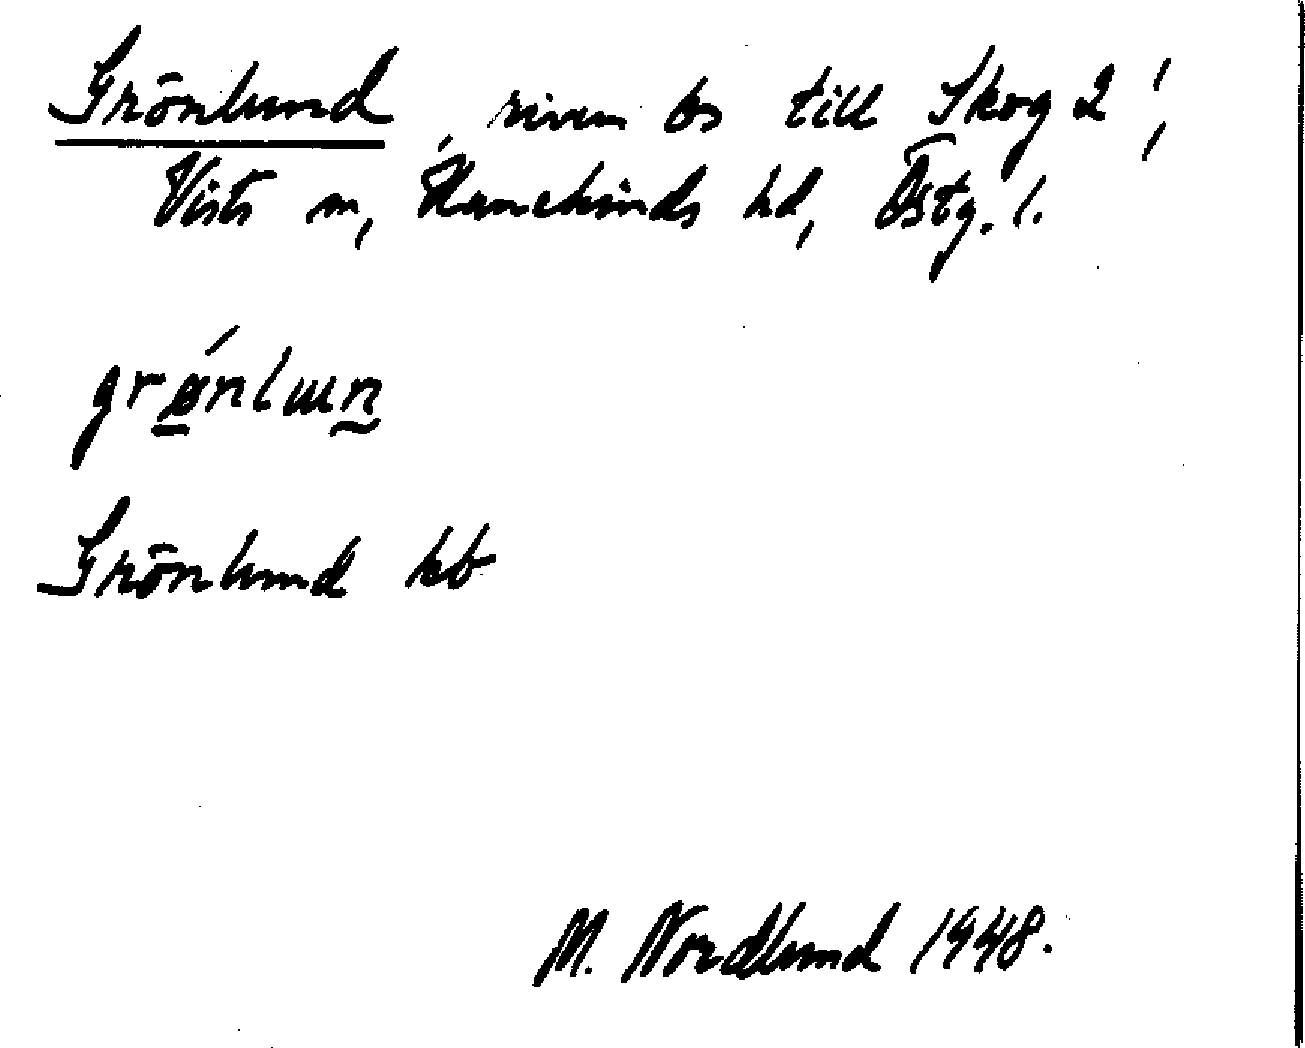 Grönlund, riven bs till Skog 2¹,
Vists sn, Hanekinds hd, Östg. l.
grǿnlɯn
Grönlund kb
M. Nordlund 1948.